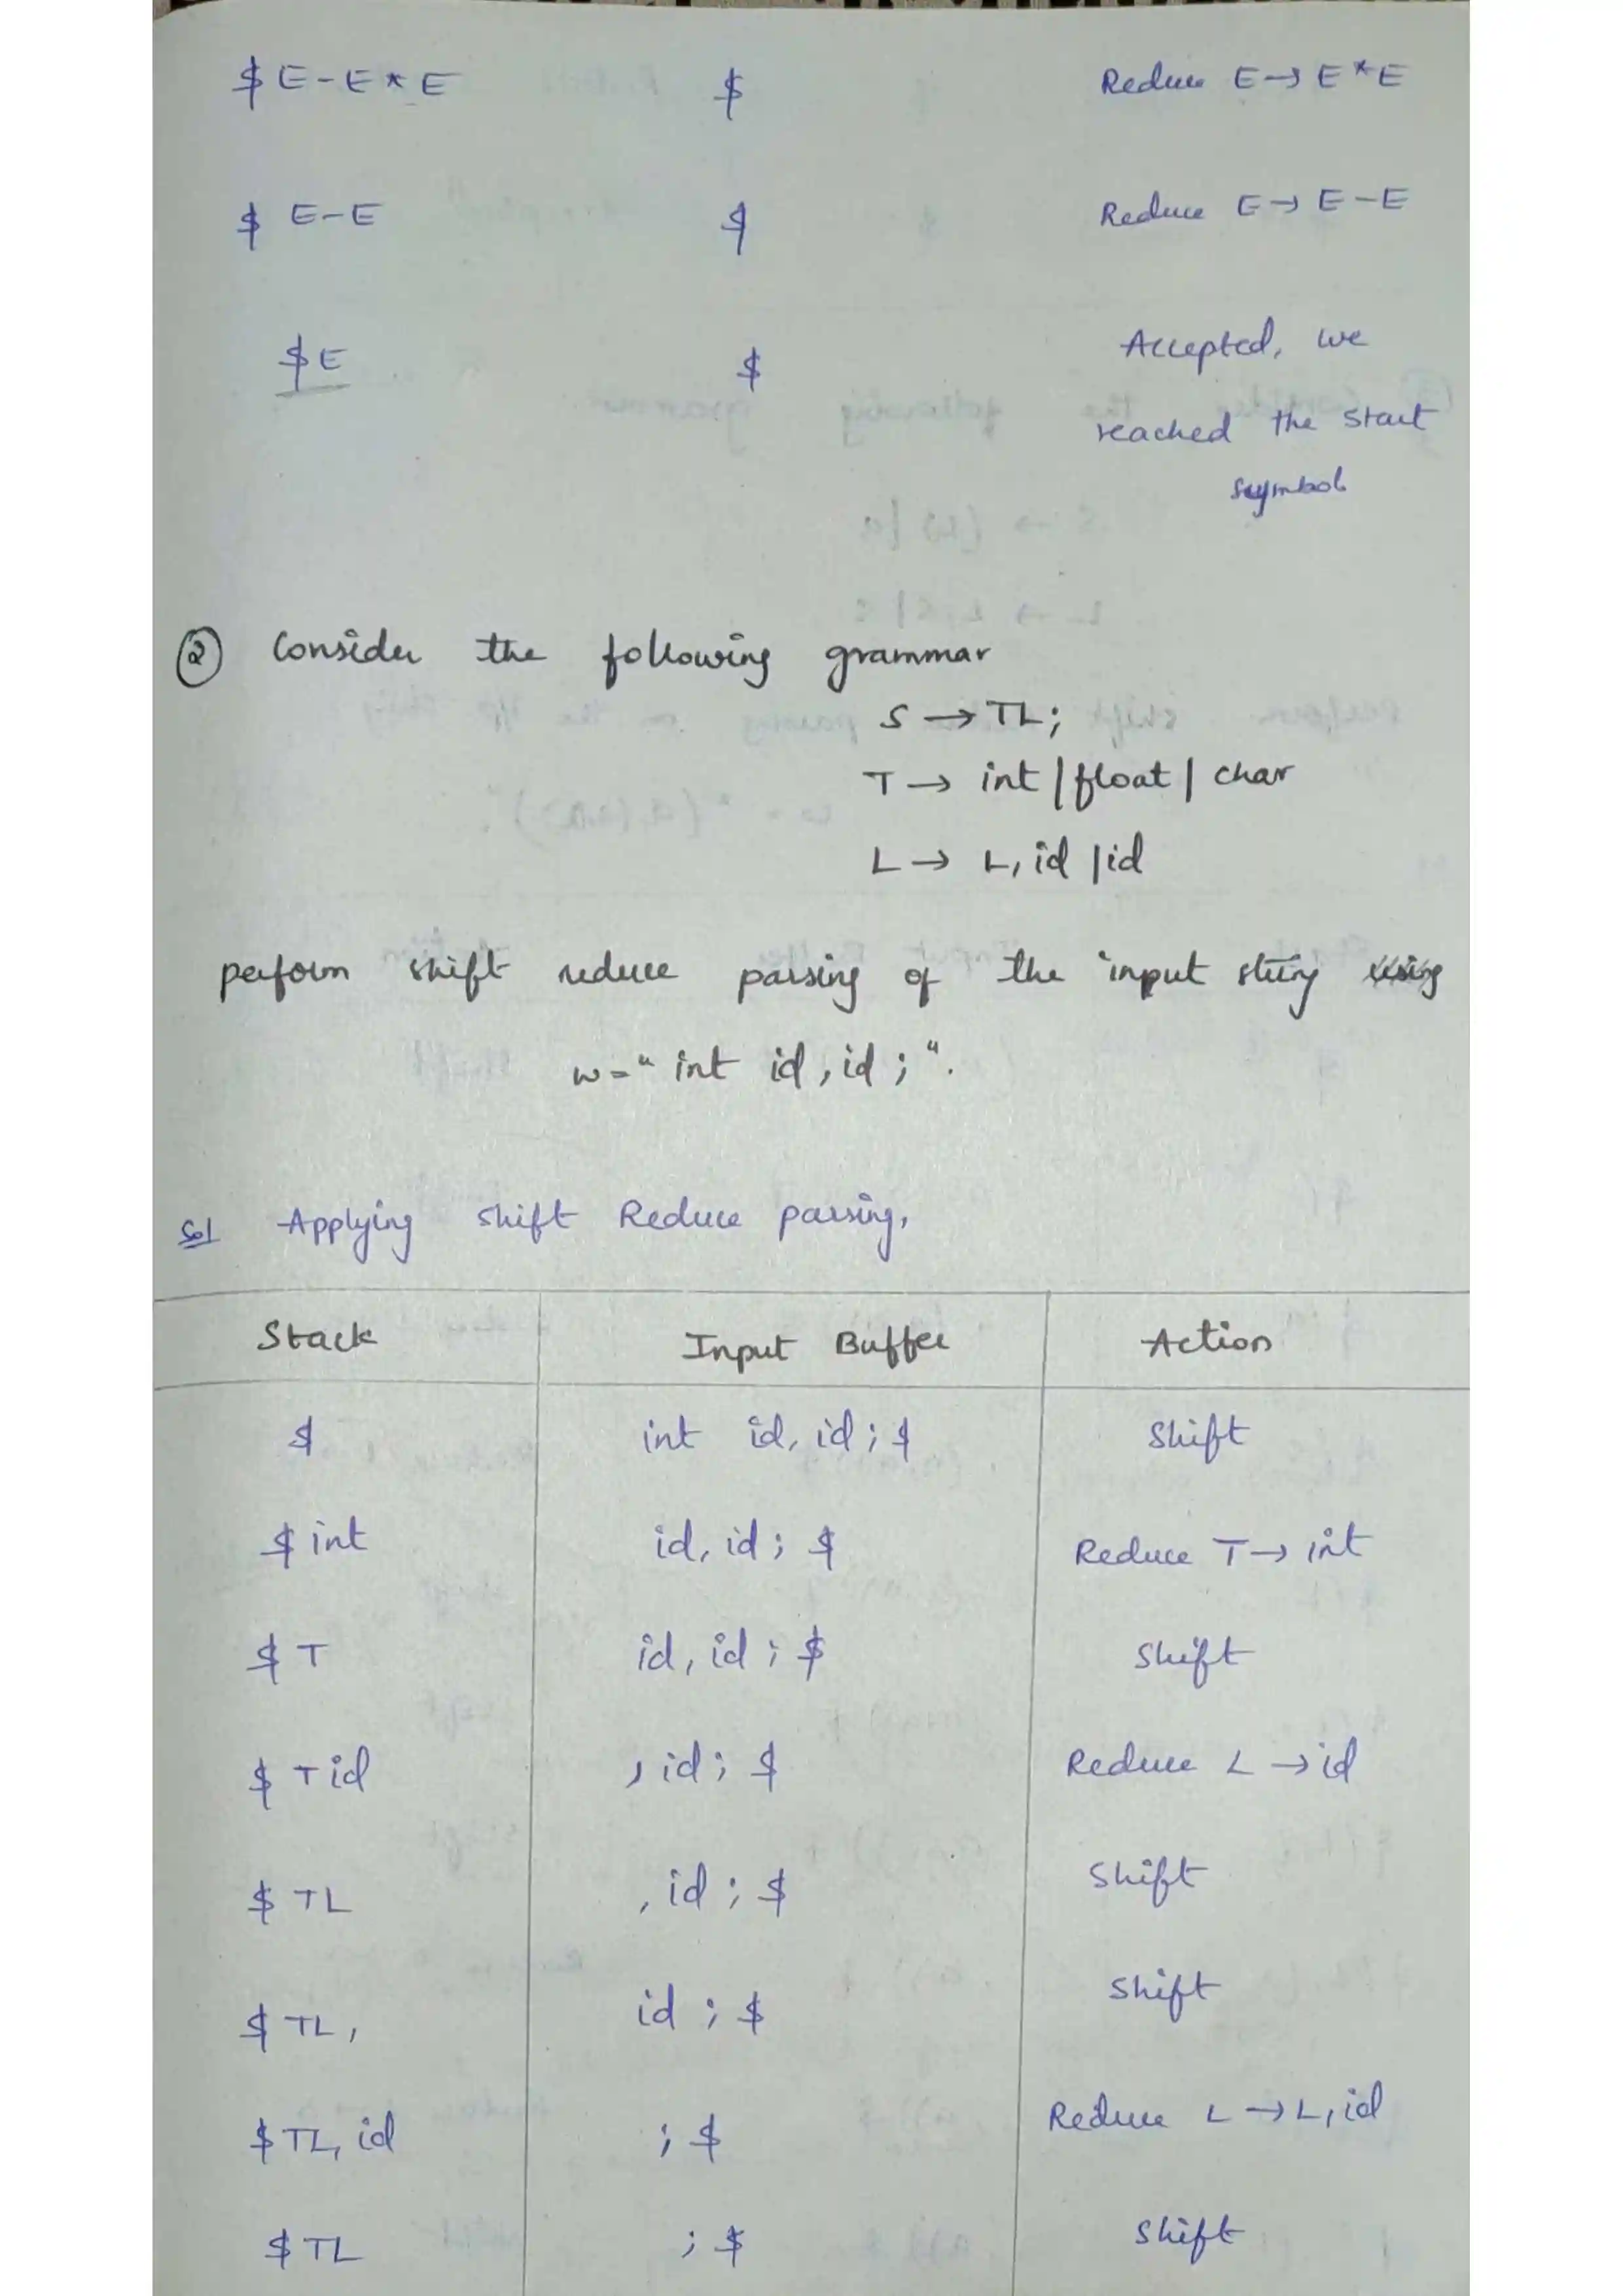 $ E - E * E $ Reduce E → E * E
$ E - E $ Reduce E → E - E
$ E $ Accepted, we
reached the start
symbol
② Consider the following grammar
S → TL;
T → int | float | char
L → L, id | id
perform shift reduce parsing of the input string
w = " int id, id ; ".
Sol Applying shift Reduce parsing,
Stack Input Buffer Action
$ int id, id ; $ Shift
$ int id, id ; $ Reduce T → int
$ T id, id ; $ Shift
$ T id , id ; $ Reduce L → id
$ TL , id ; $ Shift
$ TL , id ; $ Shift
$ TL, id ; $ Reduce L → L, id
$ TL ; $ Shift